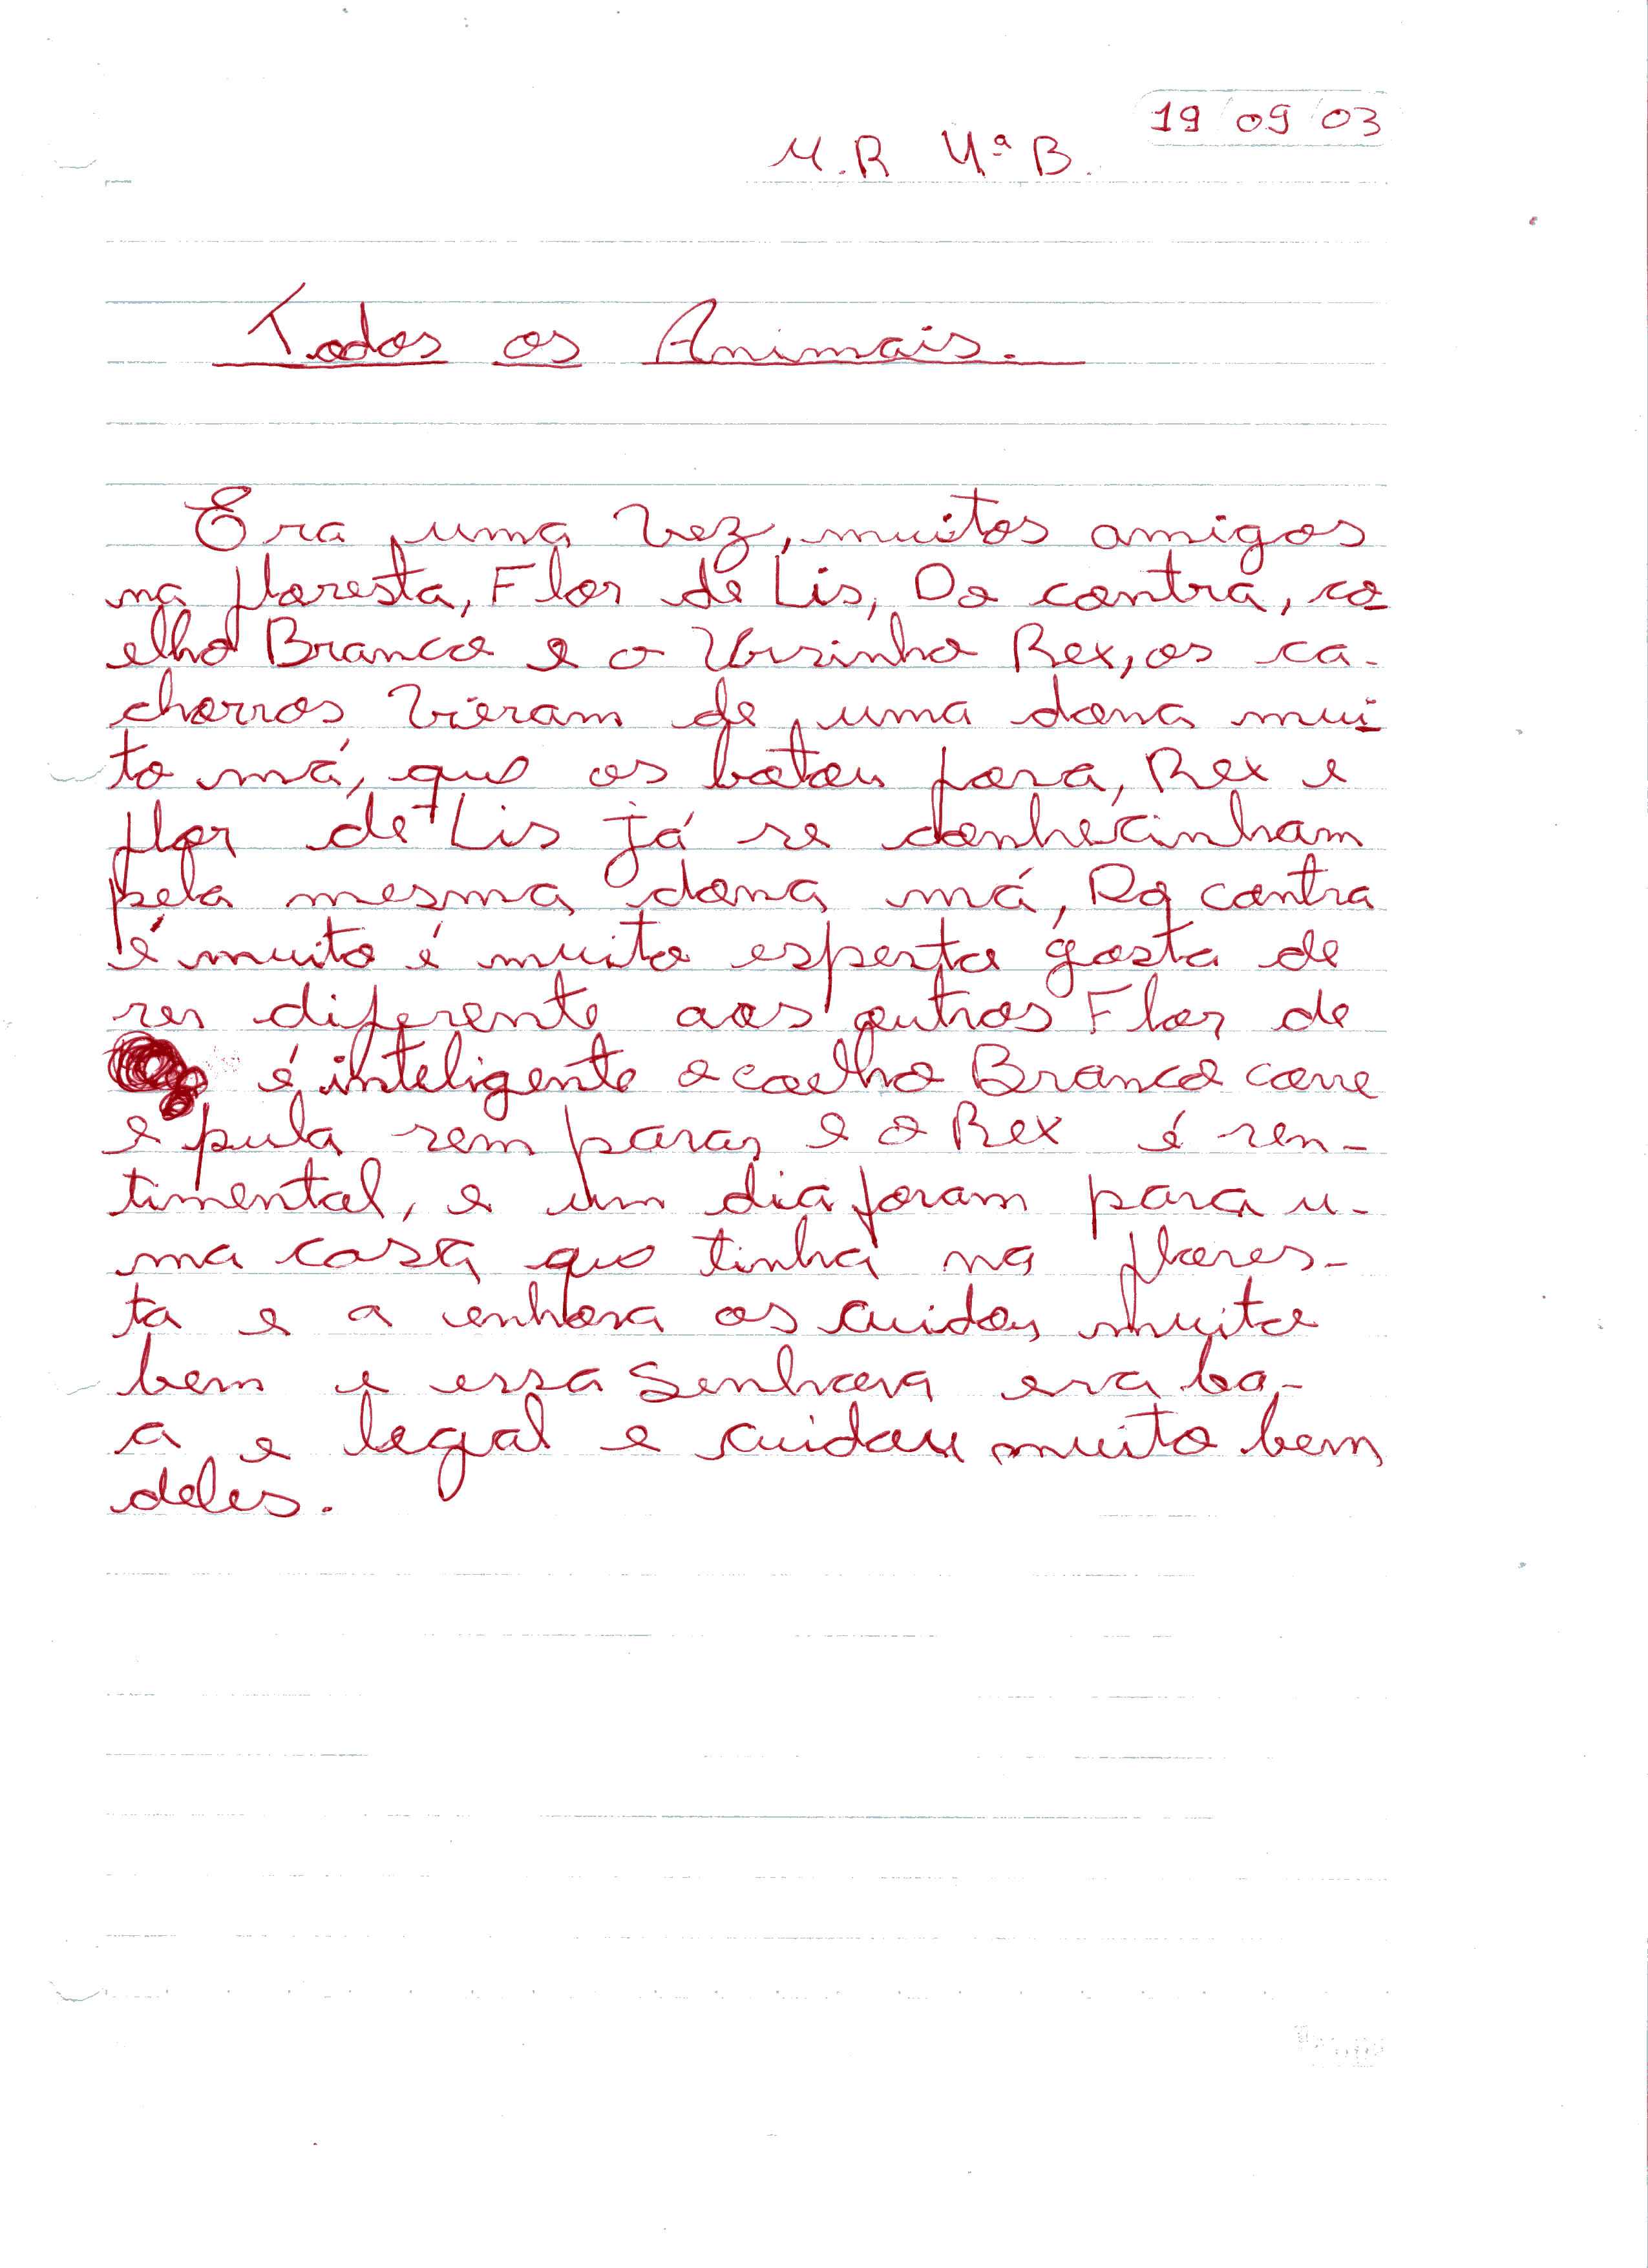 19/09/03
M.R 4ª B.
Todos os Animais.
Era uma vez, muitos amigos
na floresta, Flor de Lis, Do contra, co
elho Branco e o Ursinho Rex, os ca-
chorros vieram de uma dona mui
to má, que os botou fora, Rex e
flor de Lis já se conhecinham
pela mesma dona má, Do contra
é muito é muito esperto gosta de
ser diferente aos outros Flor de
é inteligente o coelho Branco corre
e pula sem parar e o Rex é sen-
timental, e um dia foram para u-
ma casa que tinha na flores-
ta e a enhora os cuidou muito
bem e essa Senhora era bo-
a e legal e cuidou muito bem
deles.